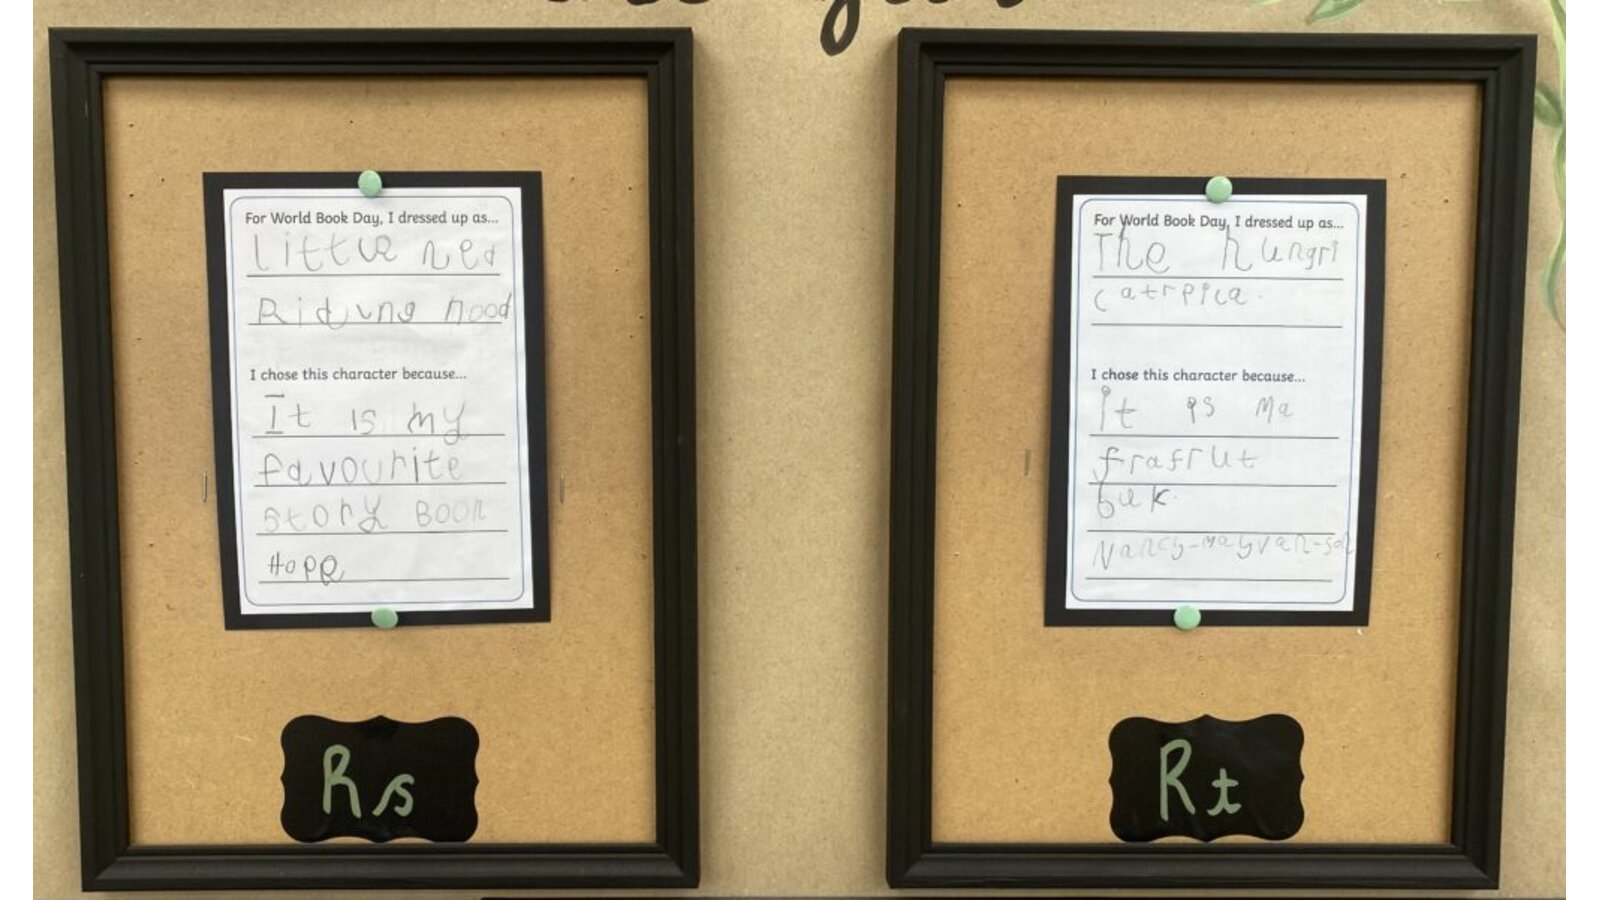 For World Book Day, I dressed up as...
little red
Riding hood
I chose this character because...
It is my
favourite
story Book
Hope
Rs
For World Book Day, I dressed up as...
The hungri
catrpica.
I chose this character because...
it is Ma
frafrut
buk.
Rt